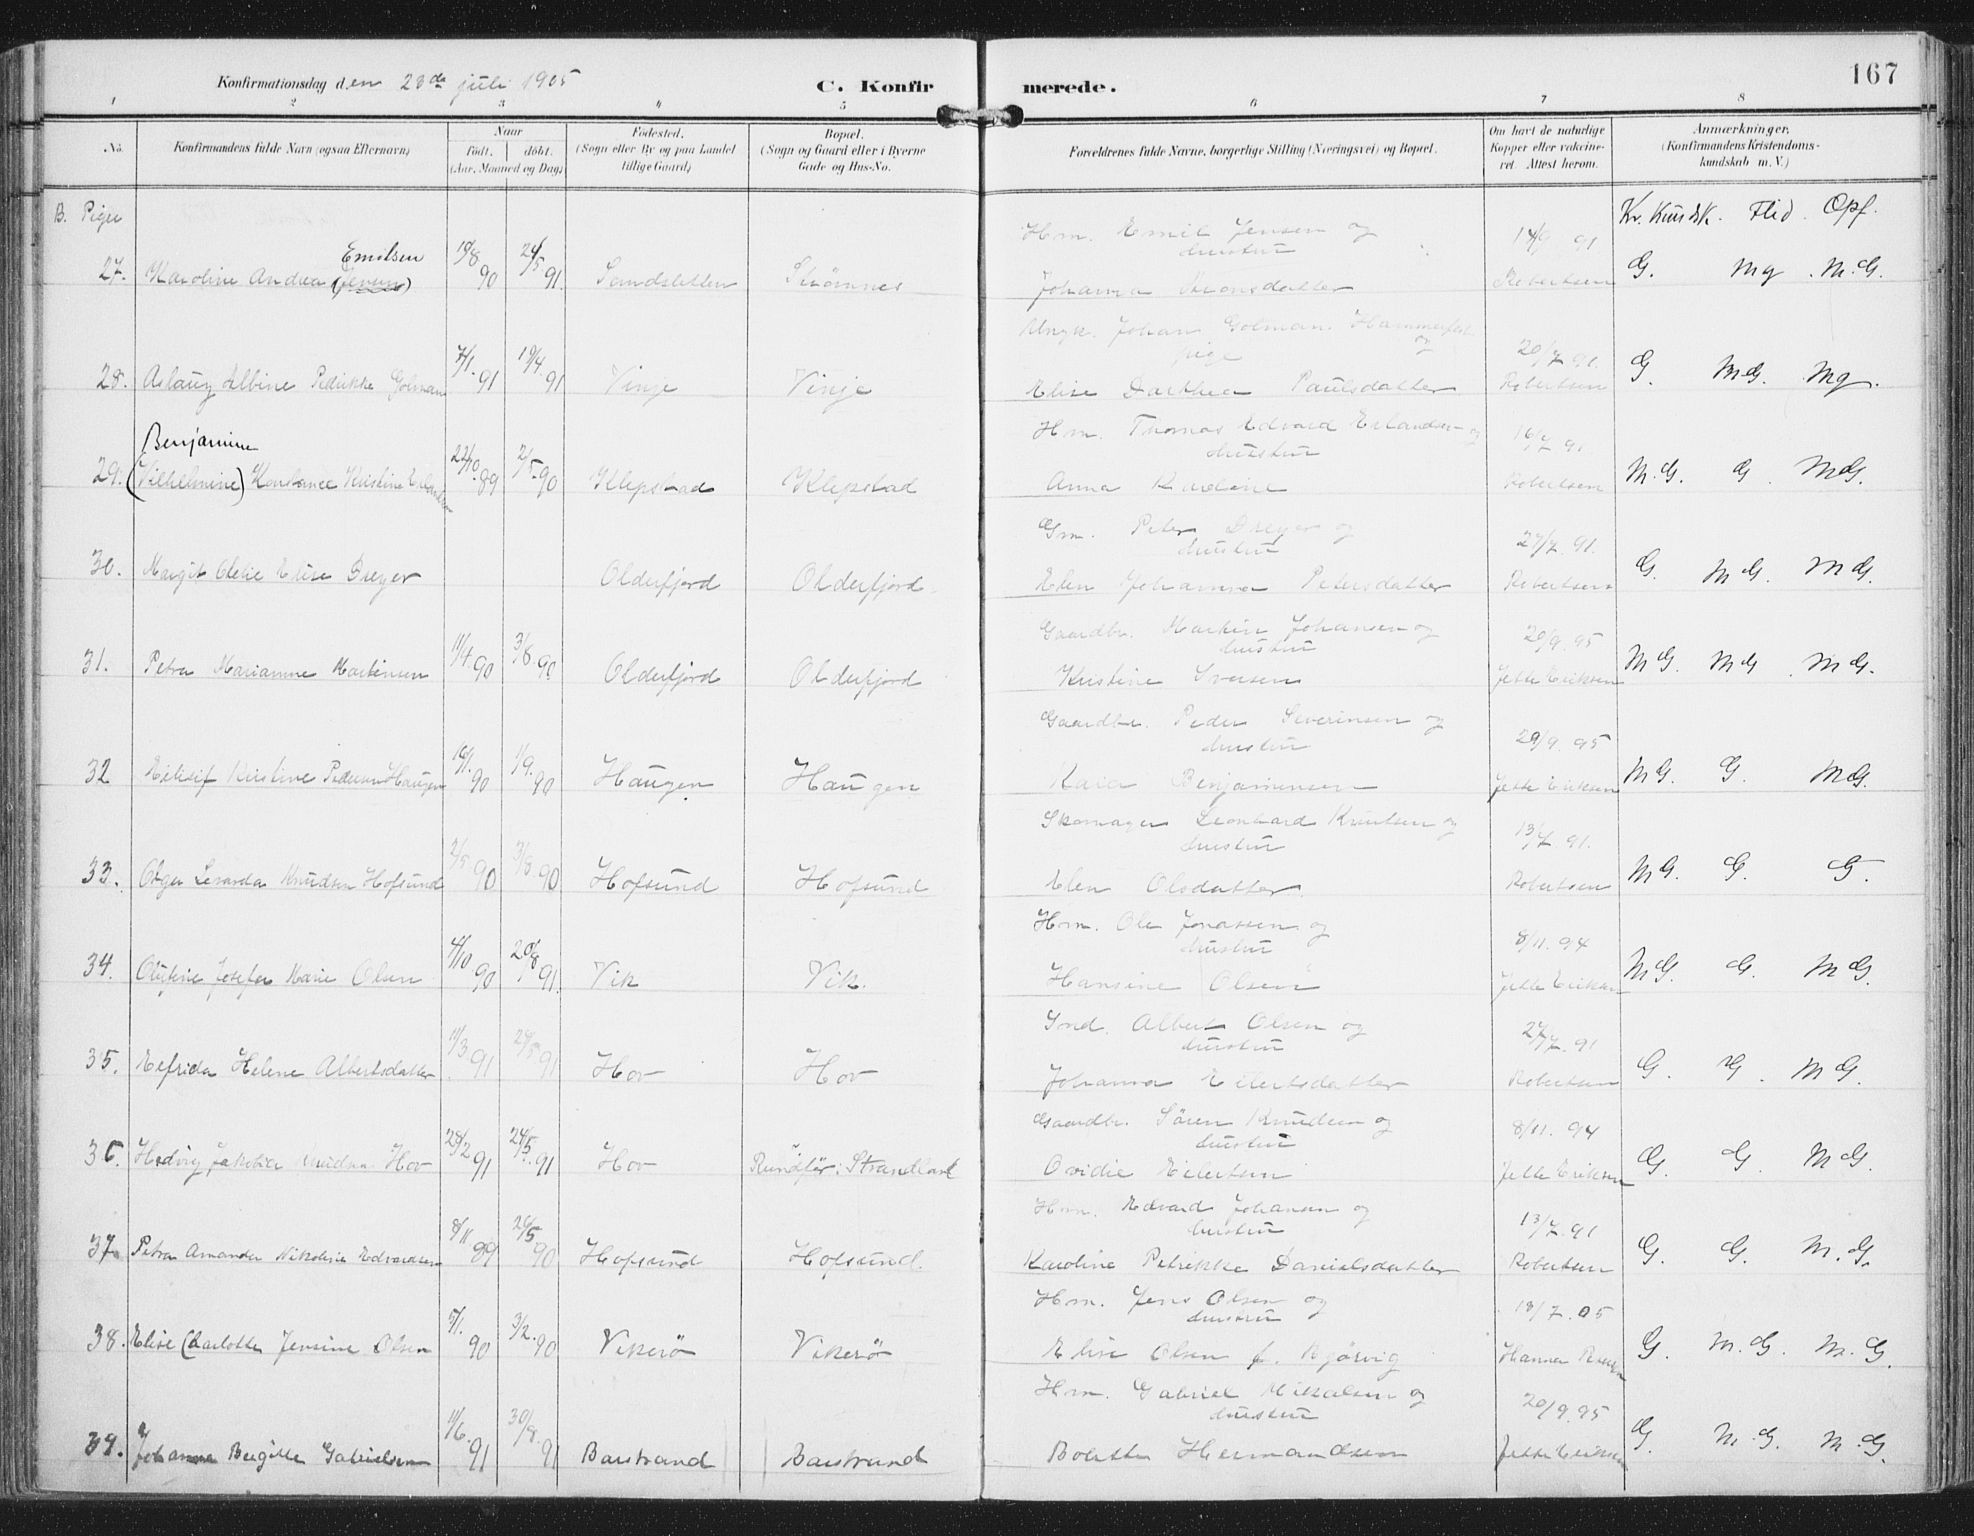 167
Konfirmationsdag den 23de juli 1905
C. Konfirmerede.
1 2 3 4 5 6 7 8
No. Konfirmandens fulde Navn (ogsaa Efternavn)
Naar født, døbt. (Aar, Maaned og Dag)
Fødested. (Sogn eller By og paa Landet tillige Gaard)
Bopæl. (Sogn og Gaard eller i Byerne Gade og Hus-No.
Forældrenes fulde Navne, borgerlige Stilling (Næringsvei) og Bopæl.
Om havt de naturlige Kopper eller vaccineret. Attest herom.
Anmærkninger. (Konfirmandens Kristendomskundskab m. V.)
B. Piger
Kr. Kundsk. Flid. Opf.
27. Karoline Andrea (Jensen) Emilsen 19/8 90 24/5 91 Sandsletten Strømnes Hm. Emil Jensen og hustru Johanna 14/9 91 Robertsen G. Mg. M.G.
28. Aslaug Albine Petrikke Golman 7/1 91 19/4 91 Vinje Vinje Ungk. Johan Golman Hammerfest og pige Elise Dorthea Paulsdatter 20/7 91. Robertsen G. M.G. Mg.
29. Benjamine (Vilhelmine) Konstance Kristine Erlandsen 22/10 89 2/5 90 Klepstad Klepstad Hm. Thomas Edvard Erlandsen og hustru Anna Karoline 16/7 91 Robertsen M.G. G. MG.
30. Margit Oletie Elise Dreyer Olderfjord Olderfjord Gm. Peter Dreyer og hustru Elen Johanna Petersdatter 27/7 91. Robertsen G. MG. MG.
31. Petra Marianne Martinsen 11/4 90 3/8 90 Olderfjord Olderfjord Gaardbr. Martin Johansen og hustru Kristine Iversen 20/9 95 Jette Eriksen MG. MG MG.
32 Eilisif Kristine Pedersen Haugen 16/1 90 1/9 90 Haugen Haugen Gaardbr. Peder Severinsen og hustru Kaia Benjaminsen 29/9 95 Jette Eriksen MG. G. MG.
33. Olga Levarda Knudsen Hofsund 2/5 90 3/8 90 Hofsund Hofsund Skomager Leonhard Knutsen og hustru Elen Olsdatter 13/7 91. Robertsen MG. G. G.
34. Olufine Josefa Marie Olsen 4/10 90 20/8 91. Vik Vik. Hm. Ole Jonassen og hustru Hansine Olsen 8/11. 94 Jette Eriksen MG. G. MG.
35. Elfrida Helene Albertsdatter 11/3 91 24/5 91 Hov Hov Ind. Albert Olsen og hustru Johanna Eilertsdatter 27/7 91 Robertsen G. G. MG.
36. Hedvig Jakobia Knudsen Hov 28/2 91 24/5 91 Hov Strandland Gaardbr. Søren Knudsen og hustru Ovidie Eilertsen 8/11. 94 Jette Eriksen G. G. MG.
37. Petra Amanda Nikoline Edvardsen 8/11 89 26/5 90 Hofsund Hofsund. Hm. Edvard Johansen og hustru Karoline Petrikke Danielsdatter 13/7 91 Robertsen G. G. M.G.
38. Elise Charlotte Jensine Olsen 5/1. 90 3/2. 90 Vikerø Vikerø Hm. Jens Olsen og hustru Elise Olsen f. Bjørvig 18/7. 05 Hanna G. M.G. M.G.
39. Johanna Birgitte Gabrielsen 11/6 91 30/8 91 Barstrand Barstrand Hm. Gabriel Mikalsen og hustru Bolette Hermandsen 20/9. 95 Jette Eriksen G. M.G. M.G.